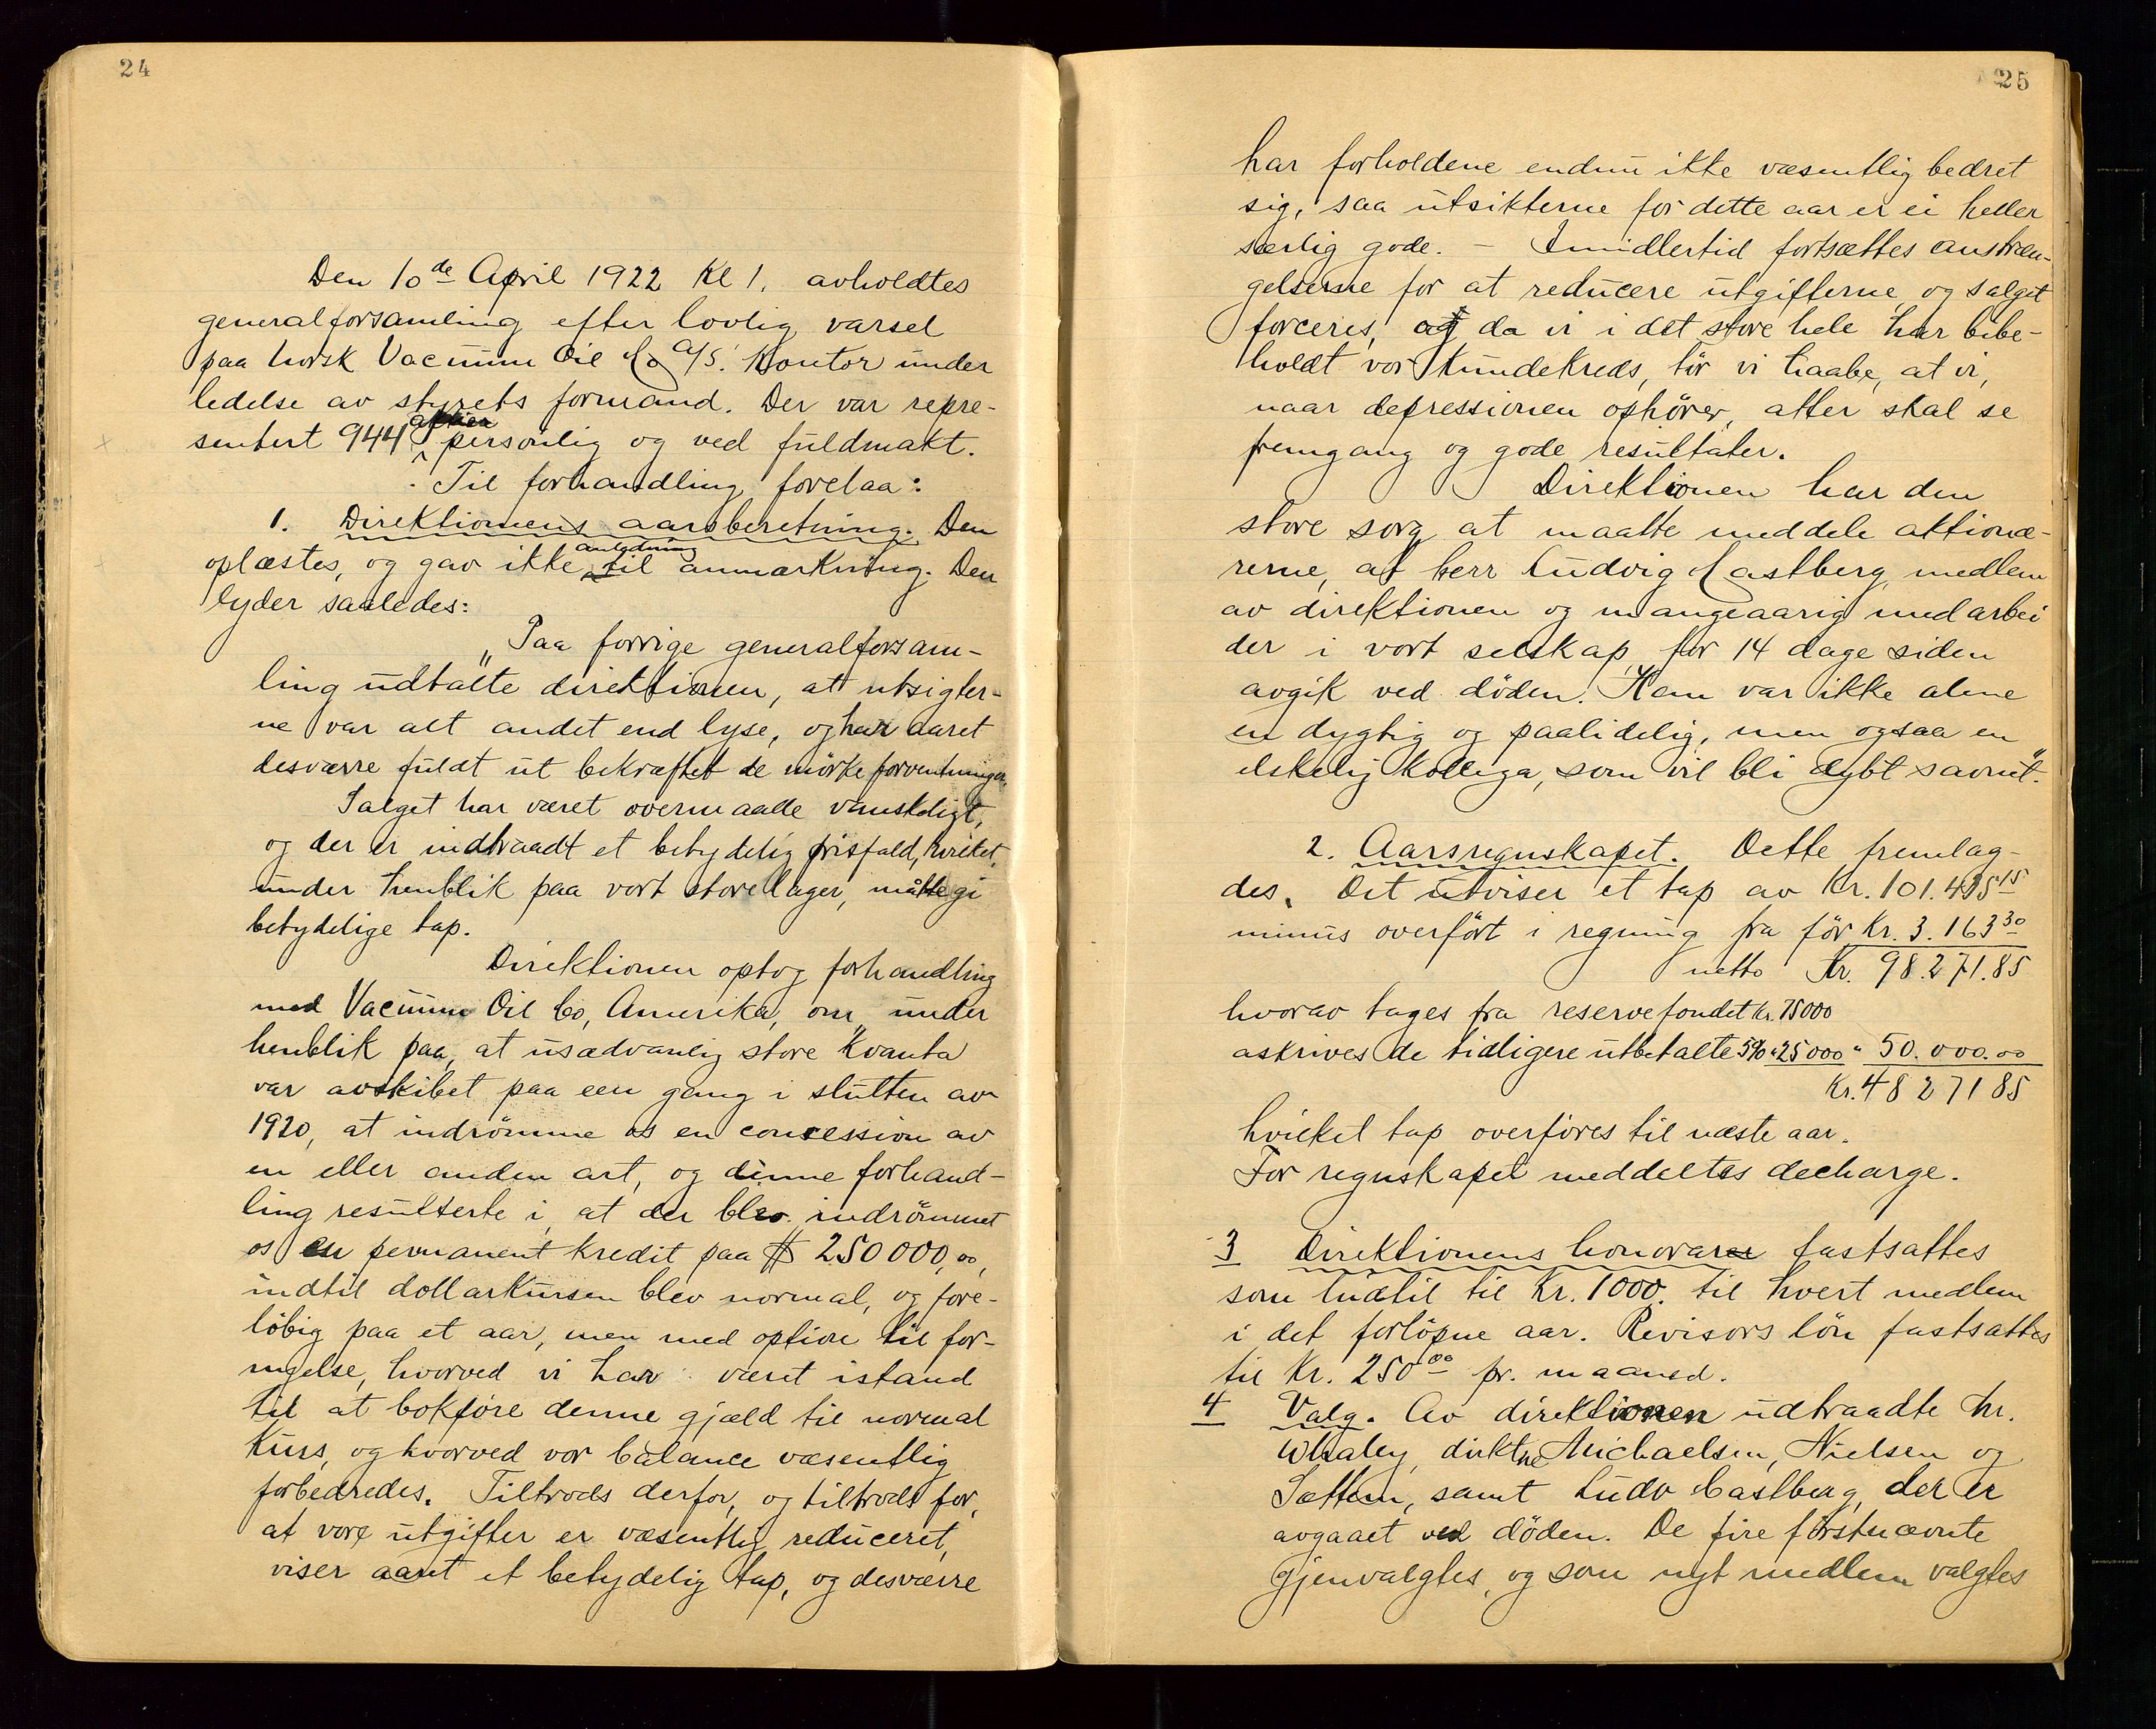 24
Den 10de April 1922 Kl 1. avholdtes
generalforsamling efter lovlig varsel
paa Norsk Vacuum Oil Co A/S. Kontor under
ledelse av styrets formand. Der var repre-
aktier
sentert 944 personlig og ved fuldmakt.
Til forhandling forelaa:
1. Direktionens aarsberetning. Den
anledning
oplæstes, og gav ikke til anmærkning. Den
lyder saaledes:
„Paa forrige generalforsam-
ling udtalte direktionen, at utsigter-
ne var alt andet end lyse, og har aaret
desværre fuldt ut bekræftet de mörke forventninger.
Salget har været overmaade vanskeligt,
og der er indtraadt et betydelig prisfald, hvilket,
under henblik paa vort store lager, måtte gi
betydelige tap.
Direktionen optog forhandling
med Vacuum Oil Co, Amerika, om, under
henblik paa, at usædvanlig store kvanta
var avskibet paa een gang i slutten av
1920, at indrömme os en concession av
en eller anden art, og denne forhand-
ling resulterte i, at der blev indrömmet
os en permanent kredit paa $ 250000,00,
indtil dollarkursen blev normal, og fore-
löbig paa et aar, men med option til for-
nyelse, hvorved vi har været istand
til at bokföre denne gjæld til normal
Kurs, og hvorved vor balance væsentlig
forbedredes. Tiltrods derfor, og tiltrods for,
at vore utgifter er væsentlig reduceret,
viser aaret et betydelig tap, og desværre
25
har forholdene endnu ikke væsentlig bedret
sig, saa utsikterne for dette aar er ei heller
særlig gode. – Imidlertid fortsættes anstræn-
gelserne for at reducere utgifterne og salget
forceres, og da vi i det store hele har bibe-
holdt vor Kundekreds, tör vi haabe, at vi,
naar depressionen ophörer, atter skal se
fremgang og gode resultater.
Direktionen har den
store sorg at maatte meddele aktionæ-
rerne, at herr Ludvig Castberg, medlem
av direktionen og mangeaarig medarbei
der i vort selskap, for 14 dage siden
avgik ved döden. Han var ikke alene
en dygtig og paalidelig, men ogsaa en
elskelig kollega, som vil bli dybt savnet."
2. Aarsregnskapet. Dette fremlag-
des. Det utviser et tap av Kr. 101.435 15
minus overfört i regning fra för Kr. 3.163 30
netto Kr. 98.271.85
hvorav tages fra reservefondet Kr. 75000
askrives de tidligere utbetalte 5% " 25000 " 50.000.00
Kr. 48 271 85
hvilket tap overföres til næste aar.
For regnskapet meddeltes decharge.
3 Direktionens honorar fastsattes
som indtil til Kr. 1000. til hvert medlem
i det forlöpne aar. Revisors lön fastsattes
til Kr. 250 00 pr. maaned.
4 Valg. Av direktionen udtraadte hr.
Whaley, dirktne Michaelsen, Nielsen og
Sættem, samt Ludv Castberg, der er
avgaaet ved döden. De fire förstnævnte
gjenvalgtes, og som nyt medlem valgtes